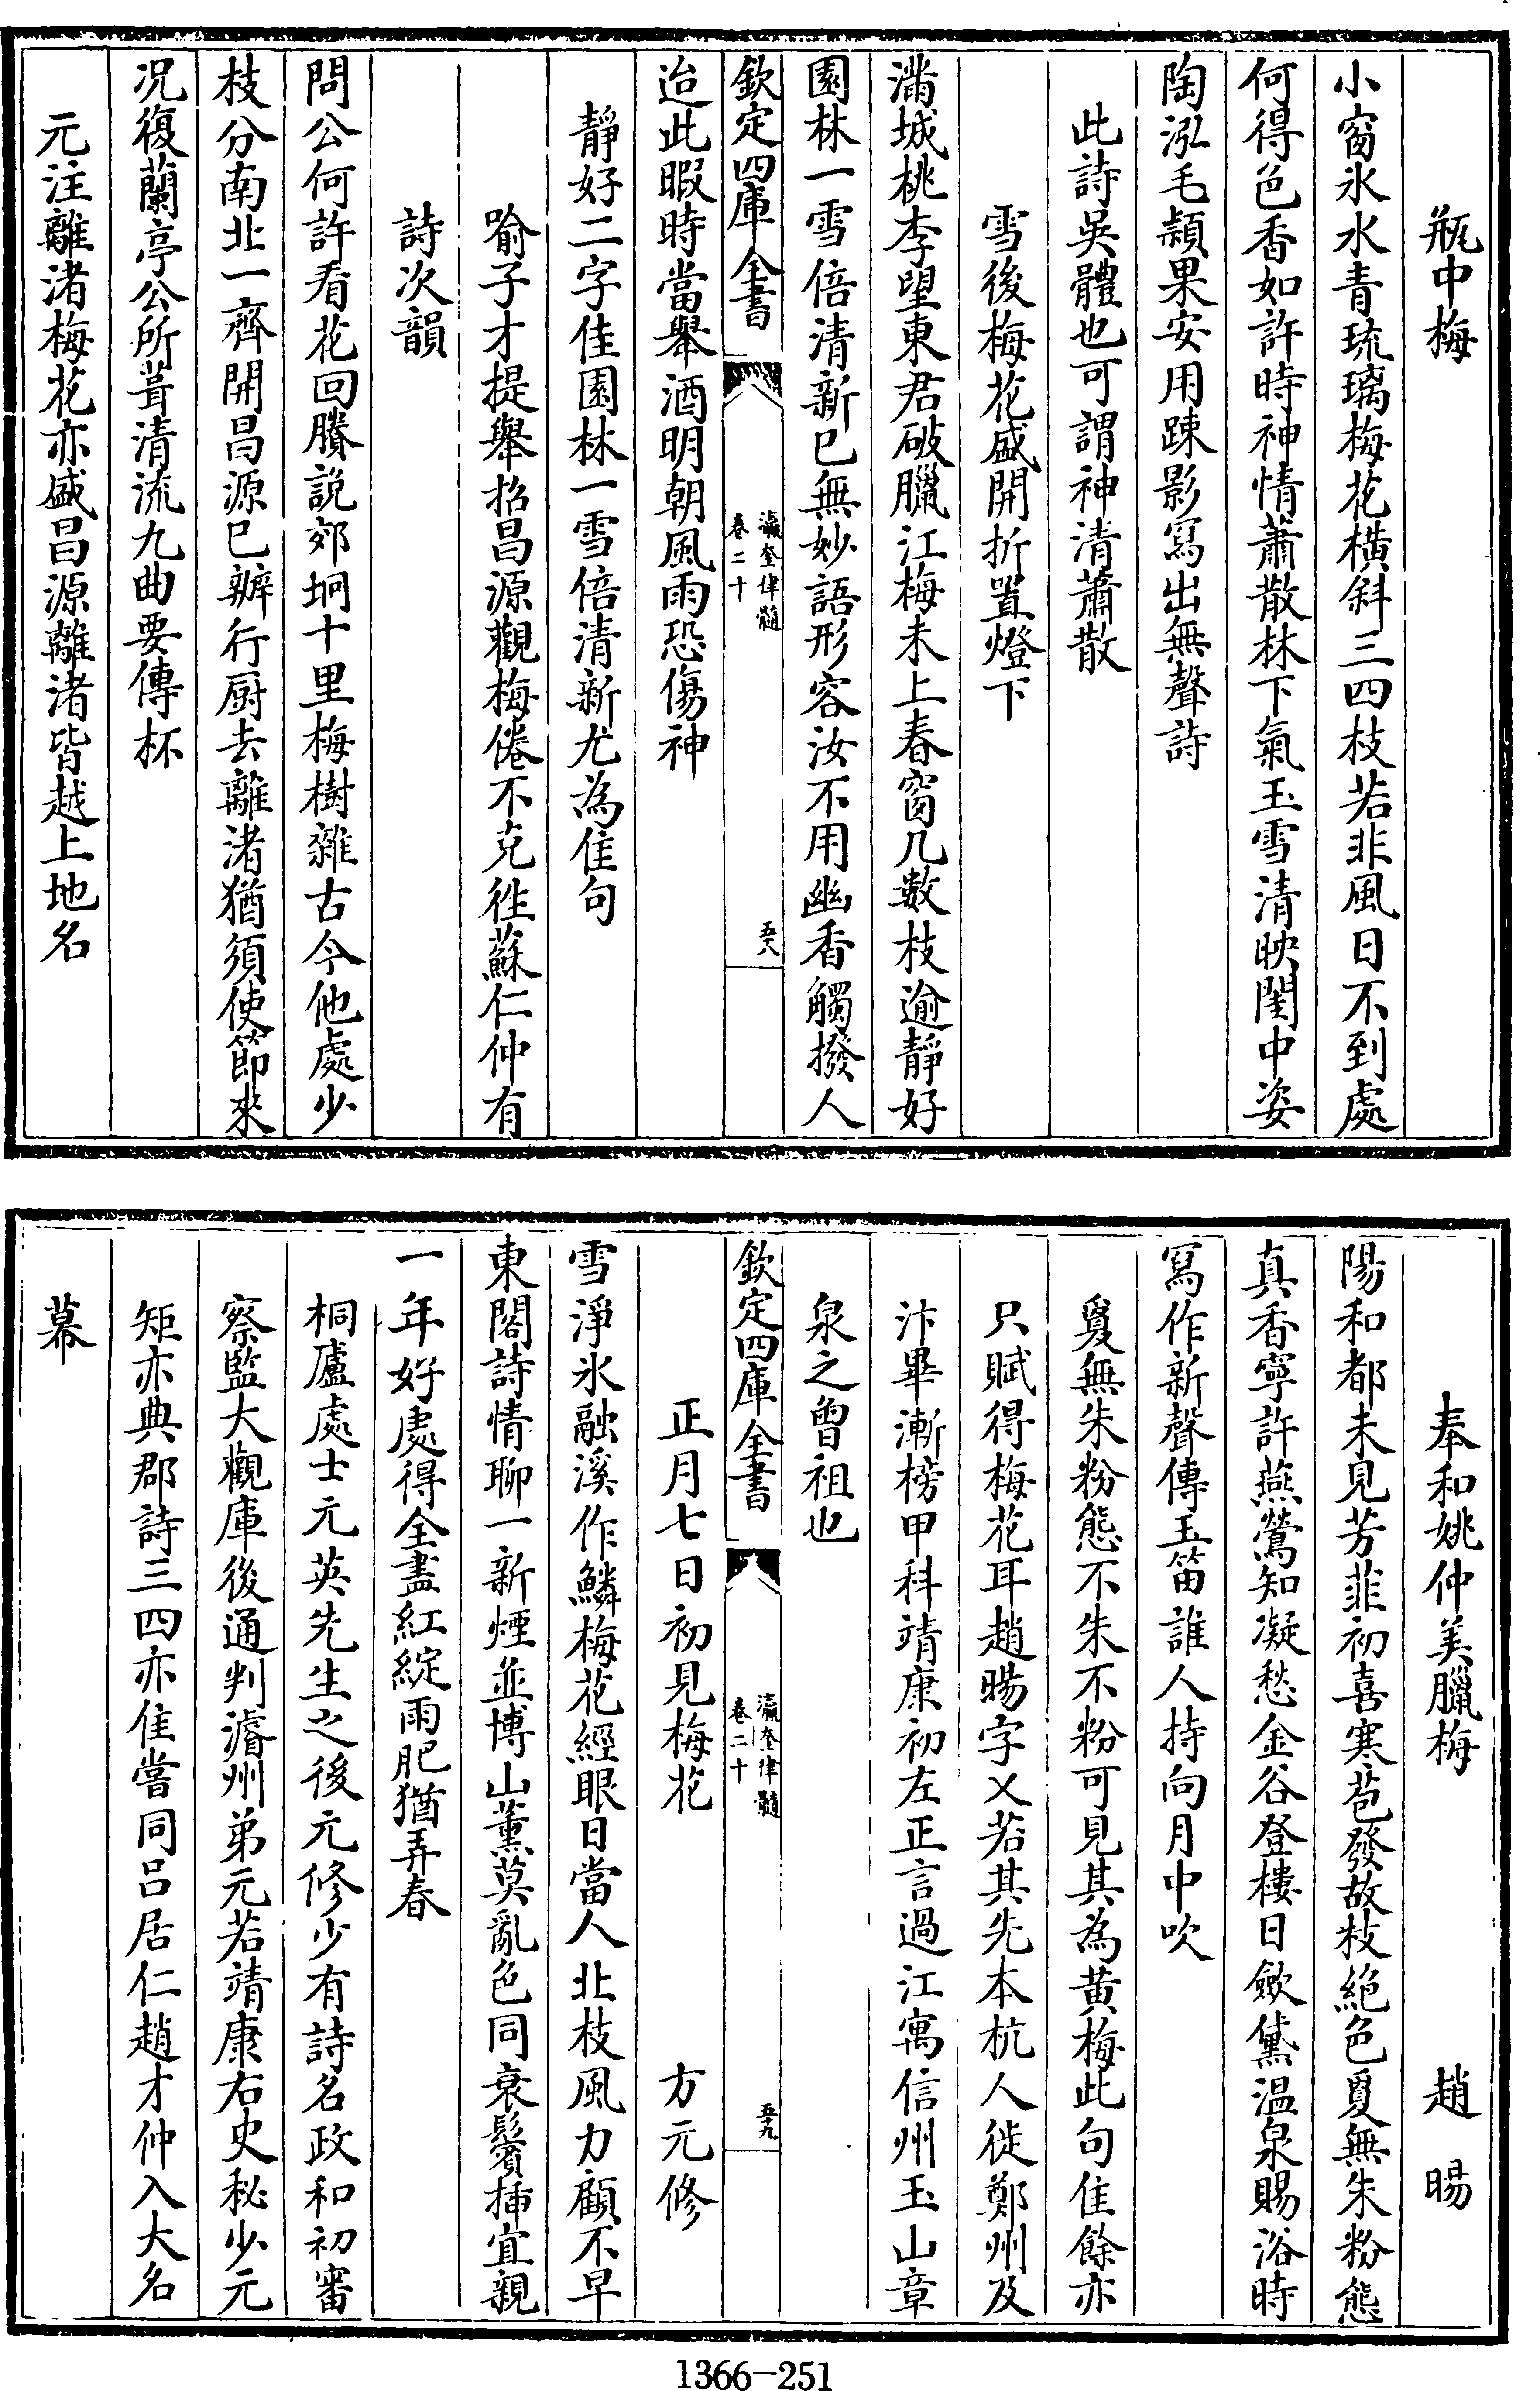 瓶中梅
小窗氷水青琉璃梅花橫斜三四枝若非風日不到處
何得色香如許時神情蕭散林下氣玉雪清映閨中姿
陶泓毛穎果安用踈影寫出無聲詩
此詩吳體也可謂神清蕭散
雪後梅花盛開折置燈下
滿城桃李望東君破臘江梅未上春窗几數枝逾靜好
園林一雪倍清新已無妙語形容汝不用幽香觸撥人
欽定四庫全書
瀛奎律髓
卷二十
五十八
迨此暇時當舉酒明朝風雨恐傷神
靜好二字佳園林一雪倍清新尤為佳句
喻子才提舉招昌源觀梅倦不克徃蘇仁仲有
詩次韻
問公何許看花回賸說郊坰十里梅樹雜古今他處少
枝分南北一齊開昌源已辦行厨去離渚猶須使節來
况復蘭亭公所葺清流九曲要傳杯
元注離渚梅花亦盛昌源離渚皆越上地名
奉和姚仲美臘梅
趙暘
陽和都未見芳菲初喜寒苞發故枝絶色夐無朱粉態
真香寧許燕鶯知凝愁金谷登樓日歛黛溫泉賜浴時
寫作新聲傳玉笛誰人持向月中吹
夐無朱粉態不朱不粉可見其為黄梅此句佳餘亦
只賦得梅花耳趙暘字乂若其先本杭人徙鄭州及
汴畢漸榜甲科靖康初左正言過江寓信州玉山章
泉之曾祖也
欽定四庫全書
瀛奎律髓
卷二十
五十九
正月七日初見梅花
方元修
雪淨氷融溪作鱗梅花經眼日當人北枝風力顧不早
東閣詩情聊一新煙並博山薰莫亂色同衰鬢揷宜親
一年好處得全盡紅綻雨肥猶弄春
桐廬處士元英先生之後元修少有詩名政和初審
察監大觀庫後通判濬州弟元若靖康右史秘少元
矩亦典郡詩三四亦佳嘗同呂居仁趙才仲入大名
幕
1366-251